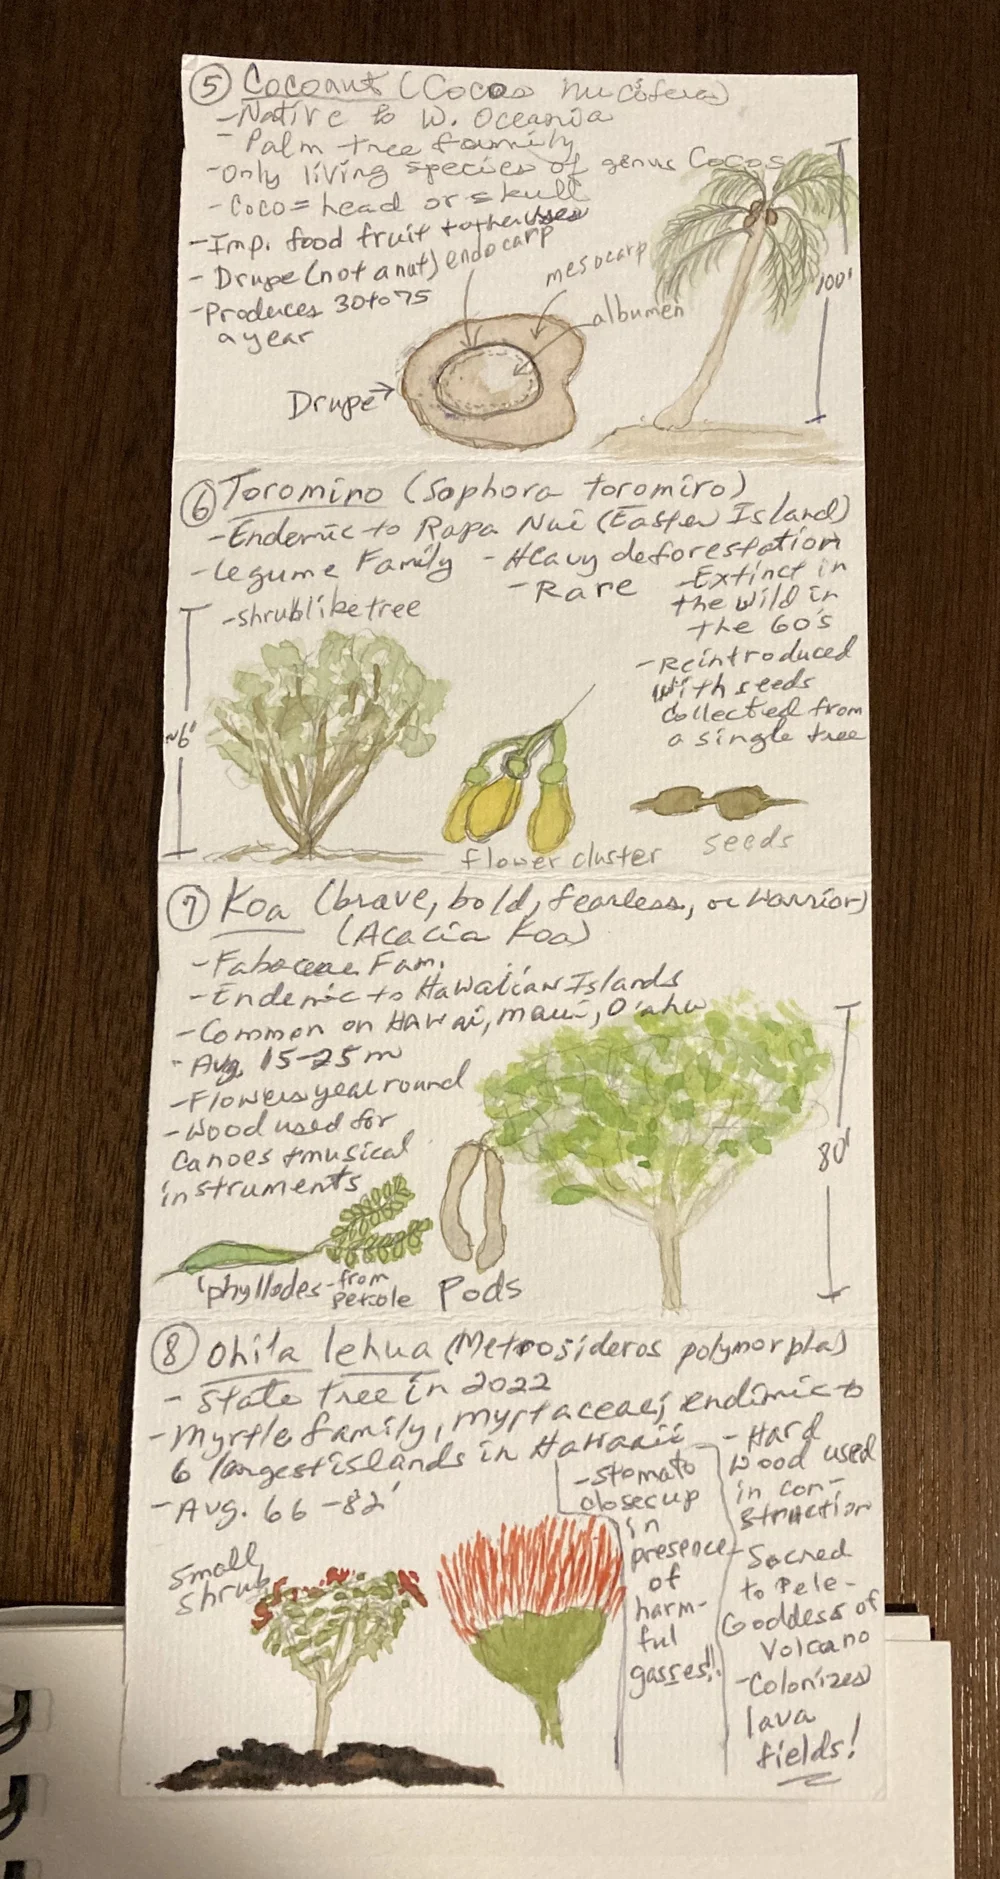 ⑤ Cocoanut (Cocos nucifera)
- Native to W. Oceania
- Palm tree family
- Only living species of genus Cocos
- Coco = head or skull
- Imp. food fruit + other uses
- Drupe (not a nut)
- Produces 30 to 75
a year
endocarp
mesocarp
albumen
Drupe
100'
⑥ Toromino (Sophora toromiro)
- Endemic to Rapa Nui (Easter Island)
- Legume Family
- Heavy deforestation
- Rare
- Extinct in
the wild in
the 60's
- Reintroduced
with seeds
collected from
a single tree
- shrublike tree
~6'
flower cluster
seeds
⑦ Koa (brave, bold, fearless, or warrior)
(Acacia Koa)
- Fabaceae Fam.
- Endemic to Hawaiian Islands
- Common on Hawai, Maui, O'ahu
- Avg. 15-25 m
- Flowers year round
- Wood used for
canoes + musical
instruments
phyllodes - from
petiole
Pods
80'
⑧ Ohi'a lehua (Metrosideros polymorpha)
- State Tree in 2022
- Myrtle family, myrtaceae; endimic to
6 largest islands in Hawaii
- Avg. 66 - 82'
small
shrub
- stomato
closes up
in
presence
of
harm-
ful
gasses!!
- Hard
wood used
in con-
struction
- Sacred
to Pele -
Goddess of
Volcano
- Colonizes
lava
fields!